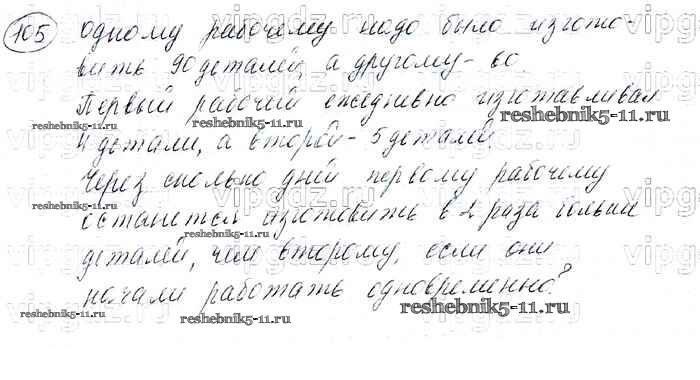 105 Одному рабочему надо было изгото-
вить 90 деталей, а другому - 60
Первый рабочий ежедневно изготавливал
4 детали, а второй - 5 деталей
Через сколько дней первому рабочему
останется изготовить в 2 раза больше
деталей, чем второму, если они
начали работать одновременно?
vipgdz.ru
reshebnik5-11.ru